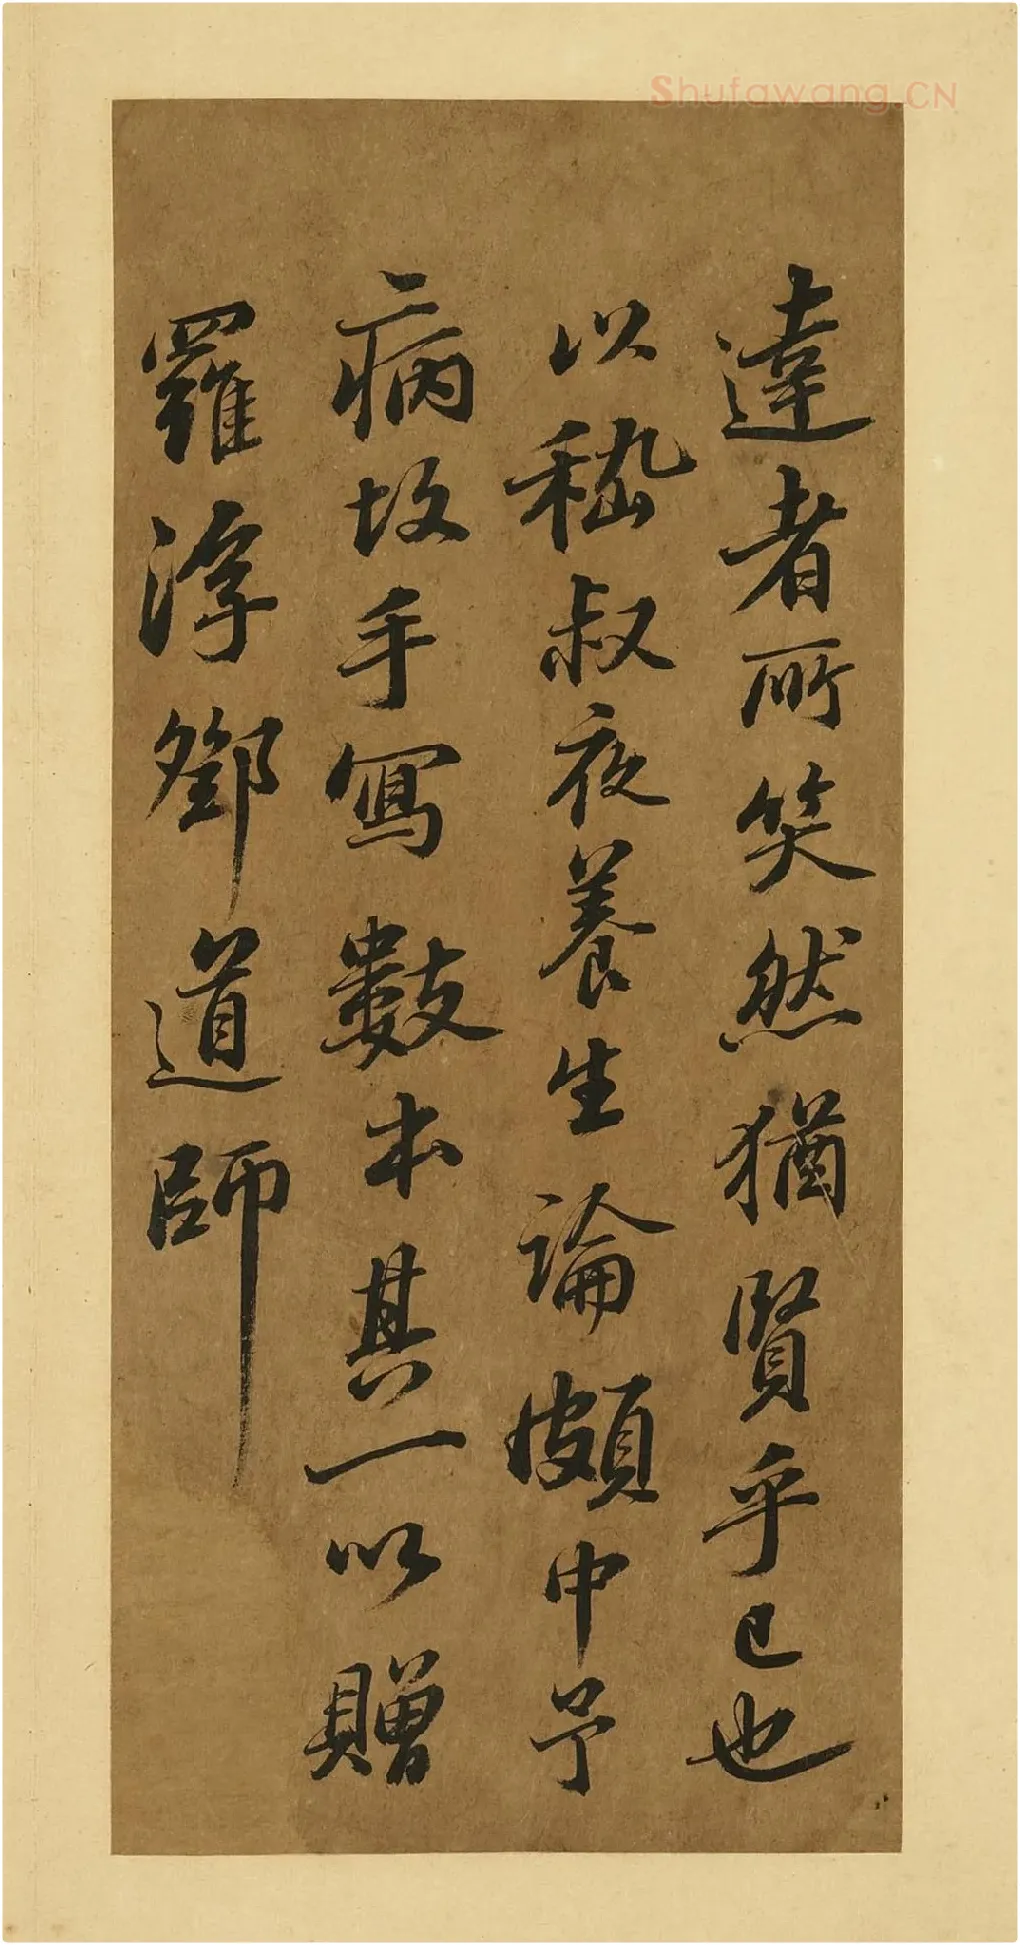 達者所笑然猶賢乎已也
以嵇叔夜養生論頗中予
病故手寫數本其一以贈
羅浮鄧道師
Shufawang.CN